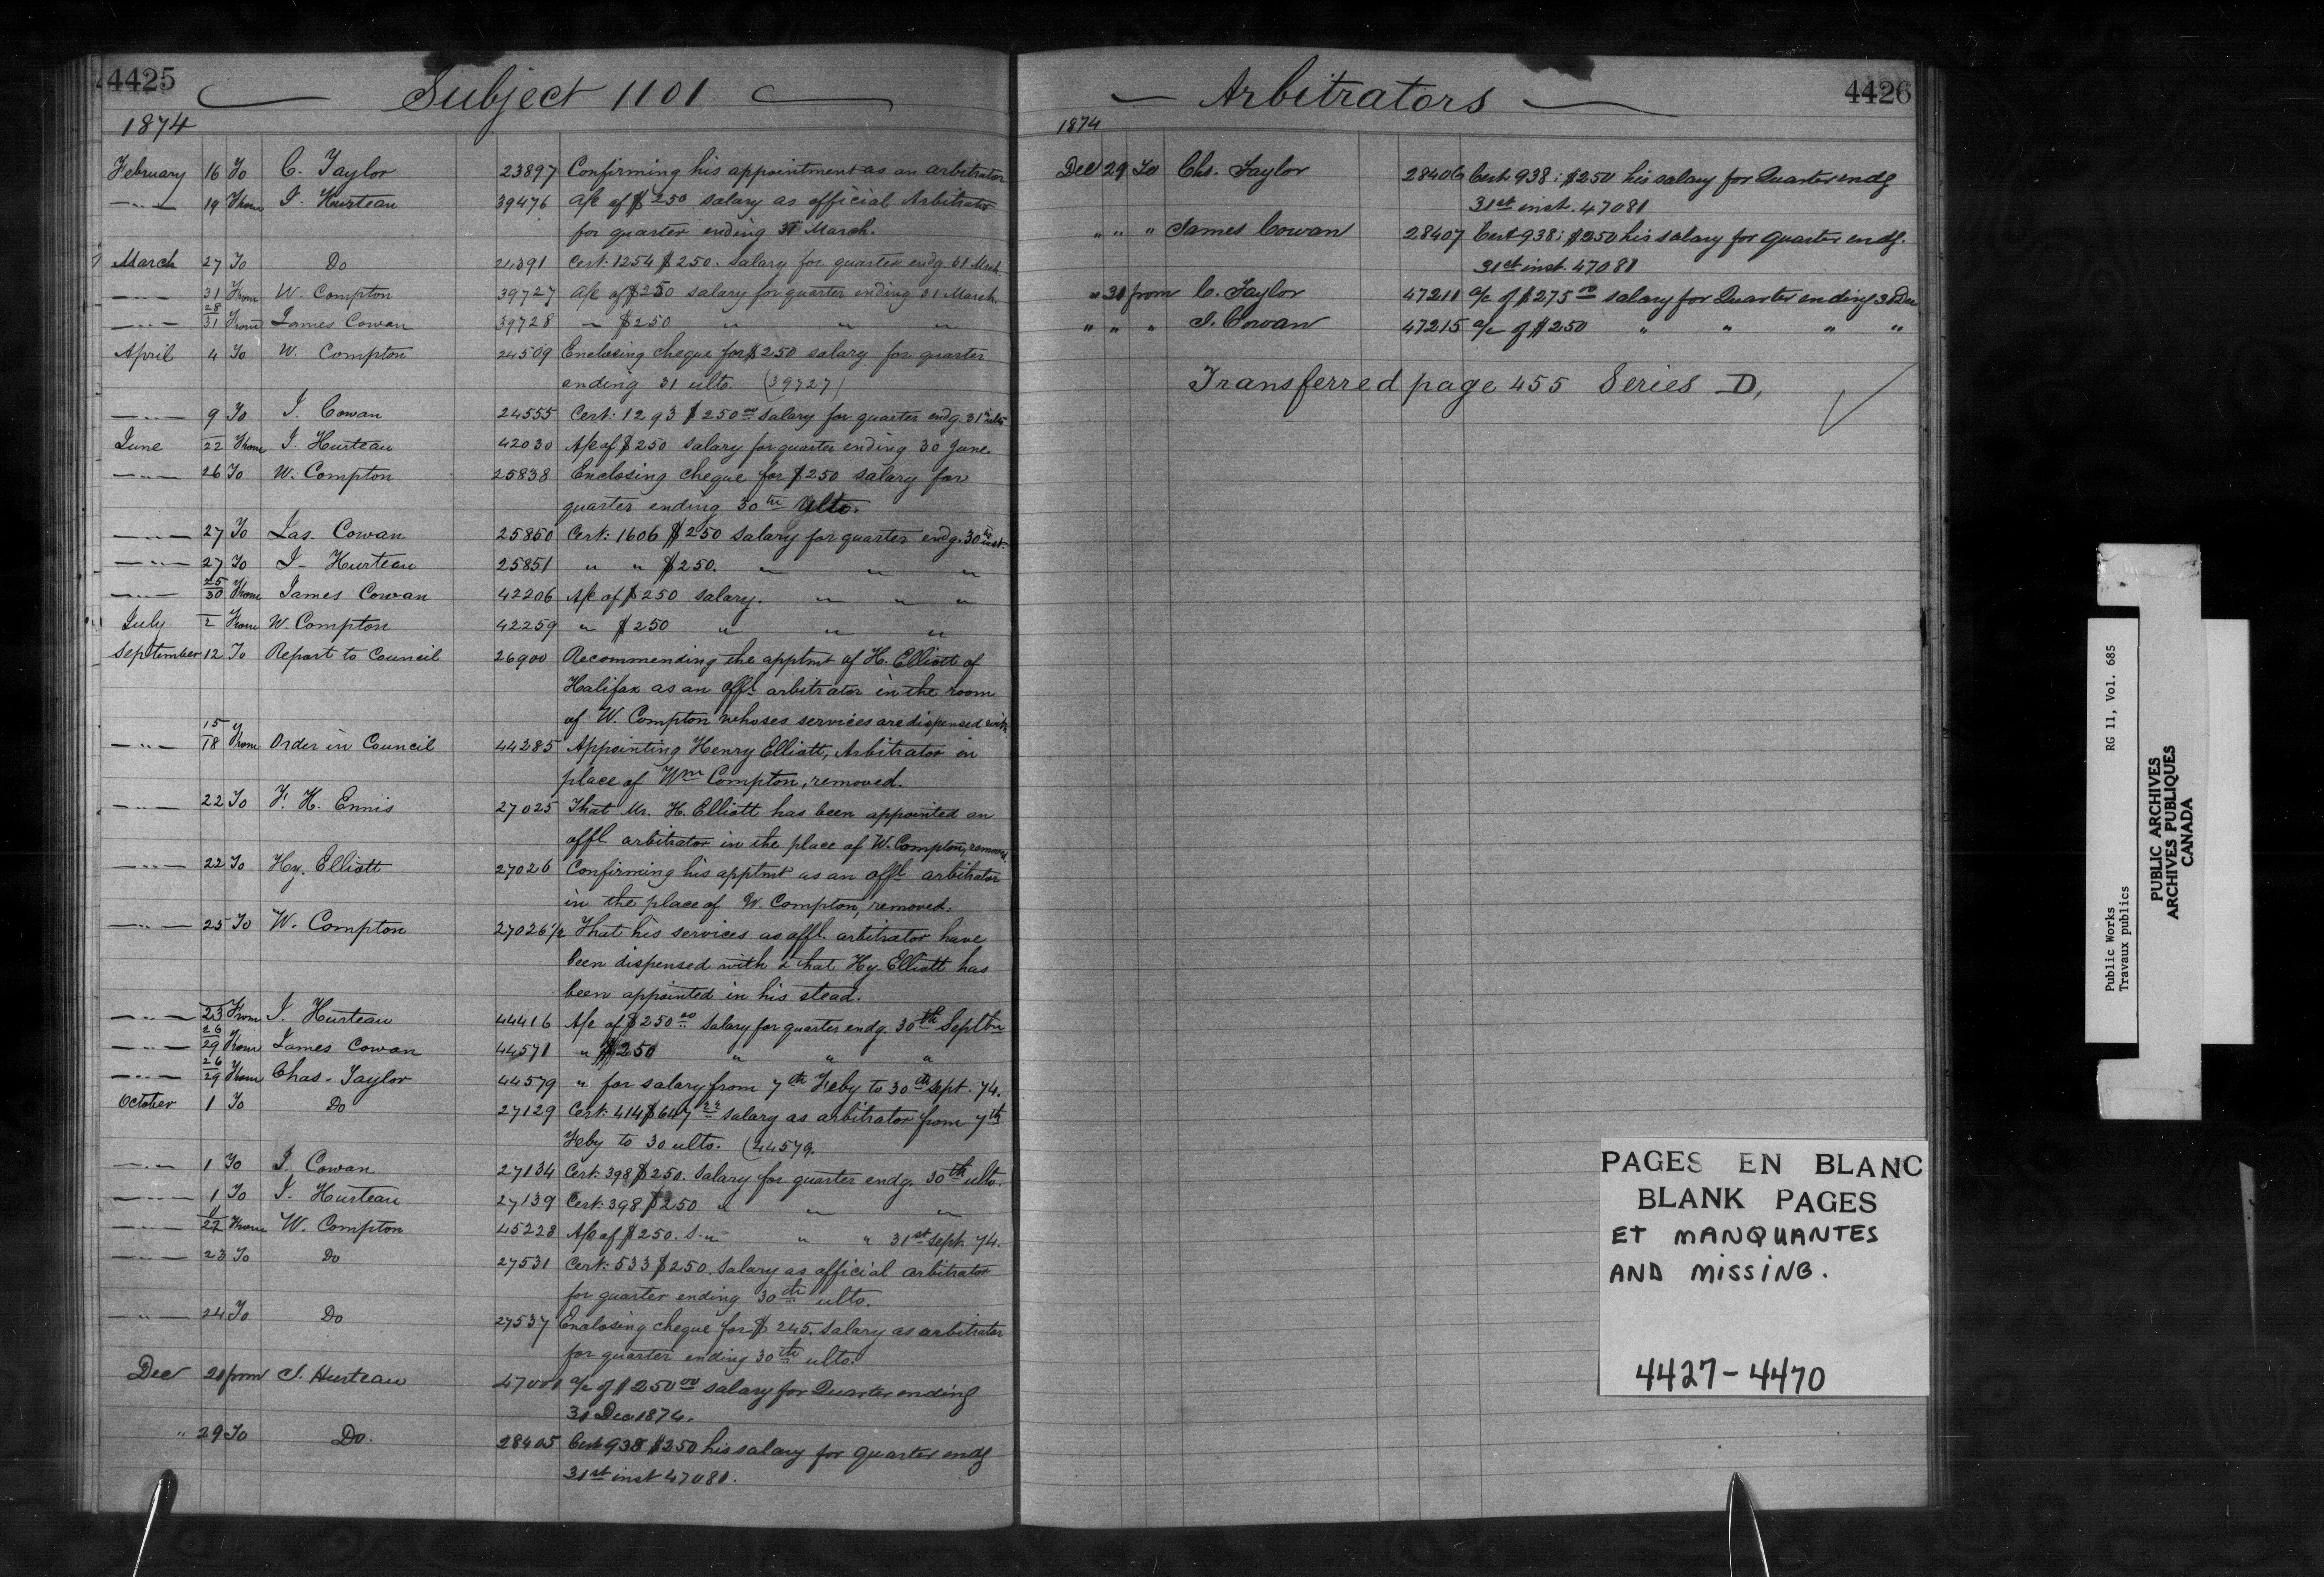 4425
Subject 1101
1874
February 16 To C. Taylor 23897 Confirming his appointment as an arbitrator
—"— 19 From I. Hurteau 39476 A/c of $250 salary as official Arbitrator
for quarter ending 31 March.
March 27 To Do 24391 Cert: 1254 $250. Salary for quarter endg. 31 March
—"— 31 From W. Compton 39727 A/c of $250 salary for quarter ending 31 March.
—"— 28/31 From James Cowan 39728 " $250 " " "
April 4 To W. Compton 24509 Enclosing cheque for $250 salary for quarter
ending 31 ulto. (39727)
—"— 9 To J. Cowan 24555 Cert: 1293 $250 00 salary for quarter endg. 31st ulto
June 22 From I. Hurteau 42030 A/c of $250 salary for quarter ending 30 June.
—"— 26 To W. Compton 25838 Enclosing cheque for $250 salary for
quarter ending 30th ulto.
—"— 27 To Jas. Cowan 25850 Cert: 1606 $250 salary for quarter endg. 30th inst.
—"— 27 To I. Hurteau 25851 " " $250. " " "
—"— 25/30 From James Cowan 42206 A/c of $250 salary. " " "
July 2 From W. Compton 42259 " $250 " " "
September 12 To Report to Council 26900 Recommending the apptmt of H. Elliott of
Halifax as an offl arbitrator in the room
of W. Compton whoses services are dispensed with
—"— 15/18 From Order in Council 44285 Appointing Henry Elliott, Arbitrator in
place of Wm Compton, removed.
—"— 22 To F. H. Ennis 27025 That Mr. H. Elliott has been appointed an
offl. arbitrator in the place of W. Compton, removed.
—"— 22 To Hy. Elliott 27026 Confirming his apptmt as an offl arbitrator
in the place of W. Compton, removed.
—"— 25 To W. Compton 27026½ That his services as offl. arbitrator have
been dispensed with & that Hy. Elliott has
been appointed in his stead.
—"— 23 From I. Hurteau 44416 A/c of $250 00 salary for quarter endg. 30th Septbr
—"— 26/29 From James Cowan 44571 " $250 " " "
—"— 26/29 From Chas. Taylor 44579 " for salary from 7th Feby to 30th Sept. 74.
October 1 To Do 27129 Cert: 414 $647 22 salary as arbitrator from 7th
Feby to 30 ulto. (44579.
—"— 1 To J. Cowan 27134 Cert: 398 $250. Salary for quarter endg. 30th ulto.
—"— 1 To I. Hurteau 27139 Cert: 398 $250 " " "
—"— 22 From W. Compton 45228 A/c of $250. S. " " " 31st Sept. 74.
—"— 23 To Do 27531 Cert: 533 $250. Salary as official arbitrator
for quarter ending 30th ulto.
—"— 24 To Do 27537 Enclosing cheque for $245. Salary as arbitrator
for quarter ending 30th ulto.
Dec from I. Hurteau a/c of $250 00 salary for Quarter ending
31 Dec 1874.
" 29 To Do. 28405 Cert 938 $250 his salary for quarter endg
31st inst 47081.
Arbitrators
4426
1874
Dec 29 To Chs. Taylor 28406 Cert 938: $250 his salary for Quarter endg
31st inst. 47081
" " " James Cowan 28407 Cert 938: $250 his salary for quarter endg.
31st inst. 47081
" 31 from C. Taylor 47211 a/c of $275 00 salary for Quarter ending 31 Dec
" " " J. Cowan 47215 a/c of $250 " " " "
Transferred page 455 Series D,
PAGES EN BLANC
BLANK PAGES
ET MANQUANTES
AND MISSING.
4427-4470
Public Works RG 11, Vol. 685
Travaux publics
PUBLIC ARCHIVES
ARCHIVES PUBLIQUES
CANADA